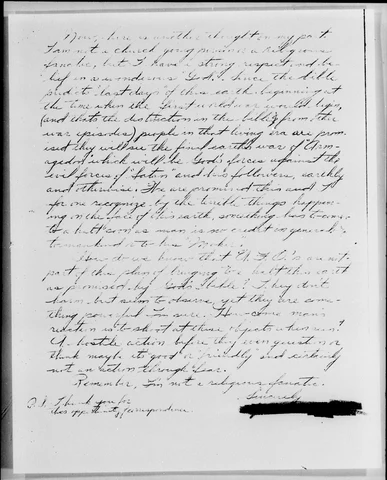 Now, here is another thought on my part
I am not a church going serviance a religious
fanatic, but I have a strong respect and be-
lief in a wonderous God. Since the bible
predicts "last days" of this earth beginning at
the time when the Great world war would begin,
(and thats the distinction in the bible from other
war episodes) people in that living era are prom-
ised they will see the final earths war of "Arm-
agedon" which will be God's forces against the
evil forces of "Satan" and his followers, earthly
and otherwise. We are promised this and I
for one recognize by the terrible things happen-
ing on the face of this earth, something has to come
to a halt soon as man is no credit in general
to mankind or to his "Maker".
How do we know that "U.F.O.s" are not
part of this plan of bringing to a halt this earth
as promised by God's Bible? They don't
harm, but seem to observe, yet they are some-
thing powerful I'm sure. How come man's
reaction is to shoot at these objects when seen?
A hostile action before they even question or
think maybe its good or friendly and certainly
not an action through fear.
Remember, I'm not a religious fanatic.
Sincerely
P.S. Thank you for
this opportunity of correspondence.